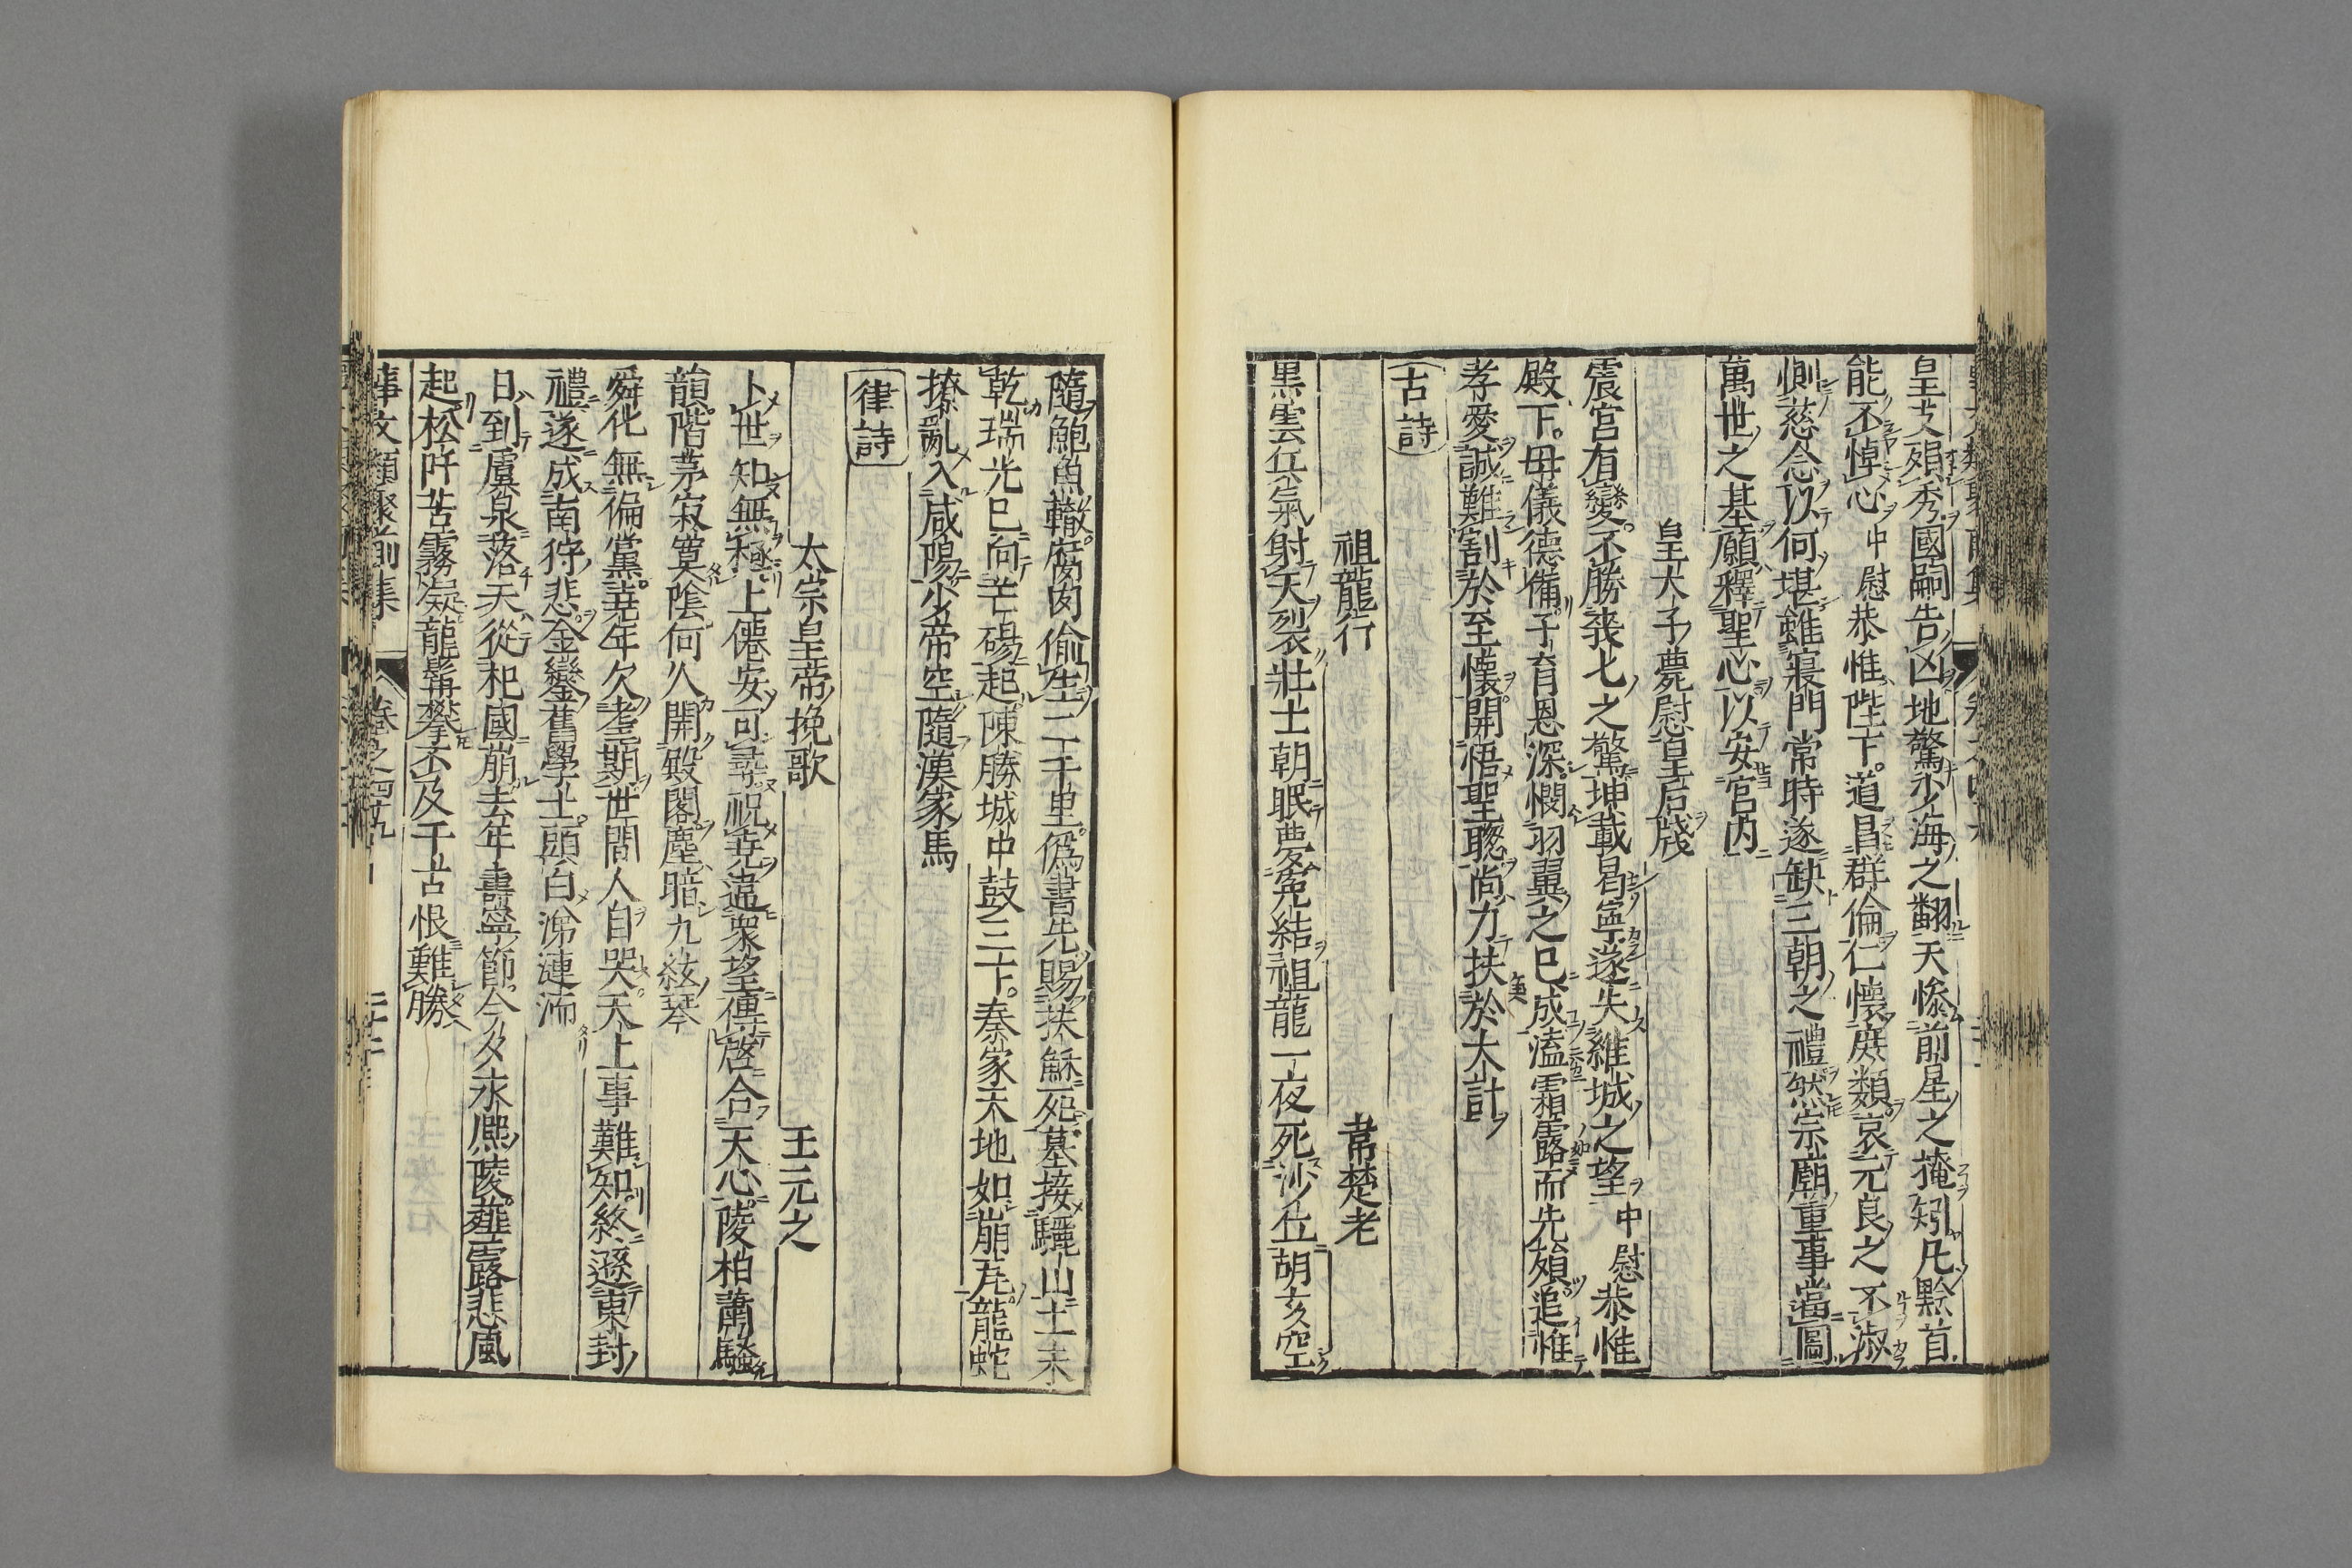 皇支殞秀國嗣告凶地驚少海之翻天慘前星之掩矧凡黔首
能不悼心中慰恭惟陛下道昌群倫仁懷庶類哀元良之不淑
惻慈念以何堪雖寢門常時遂缺三朝之禮然宗廟重事當圖
萬世之基願釋聖心以安宮内
皇太子薨慰皇后牋
震宮有變不勝喪七之驚坤載曷寧遂失維城之望中慰恭惟
殿下母儀德備子育恩深憫羽翼之已成溘霜露而先殞追惟
孝愛誠難割於至懷開悟聖聰尚力扶於大計
古詩
祖龍行
韋楚老
黒雲兵氣射天裂壯士朝眠夢寃結祖龍一夜死沙丘胡亥空
隨鮑魚轍腐肉偷生二千里僞書先賜扶蘇死墓接驪山土未
乾瑞光已向芒碭起陳勝城中鼓三下秦家天地如崩瓦龍蛇
撩亂入咸陽少帝空隨漢家馬
律詩
太宗皇帝挽歌
王元之
卜世知無極上僊安可尋祝堯違衆望傳啓合天心陵柏蕭騷
韻階茅寂寞陰何久開殿閣塵暗九絃琴
舜化無偏黨堯年欠耄期世間人自哭天上事難知終遜東封
禮遂成南狩悲金鑾舊學士頭白涕漣洏
日到虞泉落天從杞國崩去年壽寧節今夕永熈陵薤露悲風
起松阡苦霧凝龍髯攀不及千古恨難勝
事文類聚前集
卷之四十九
二十二